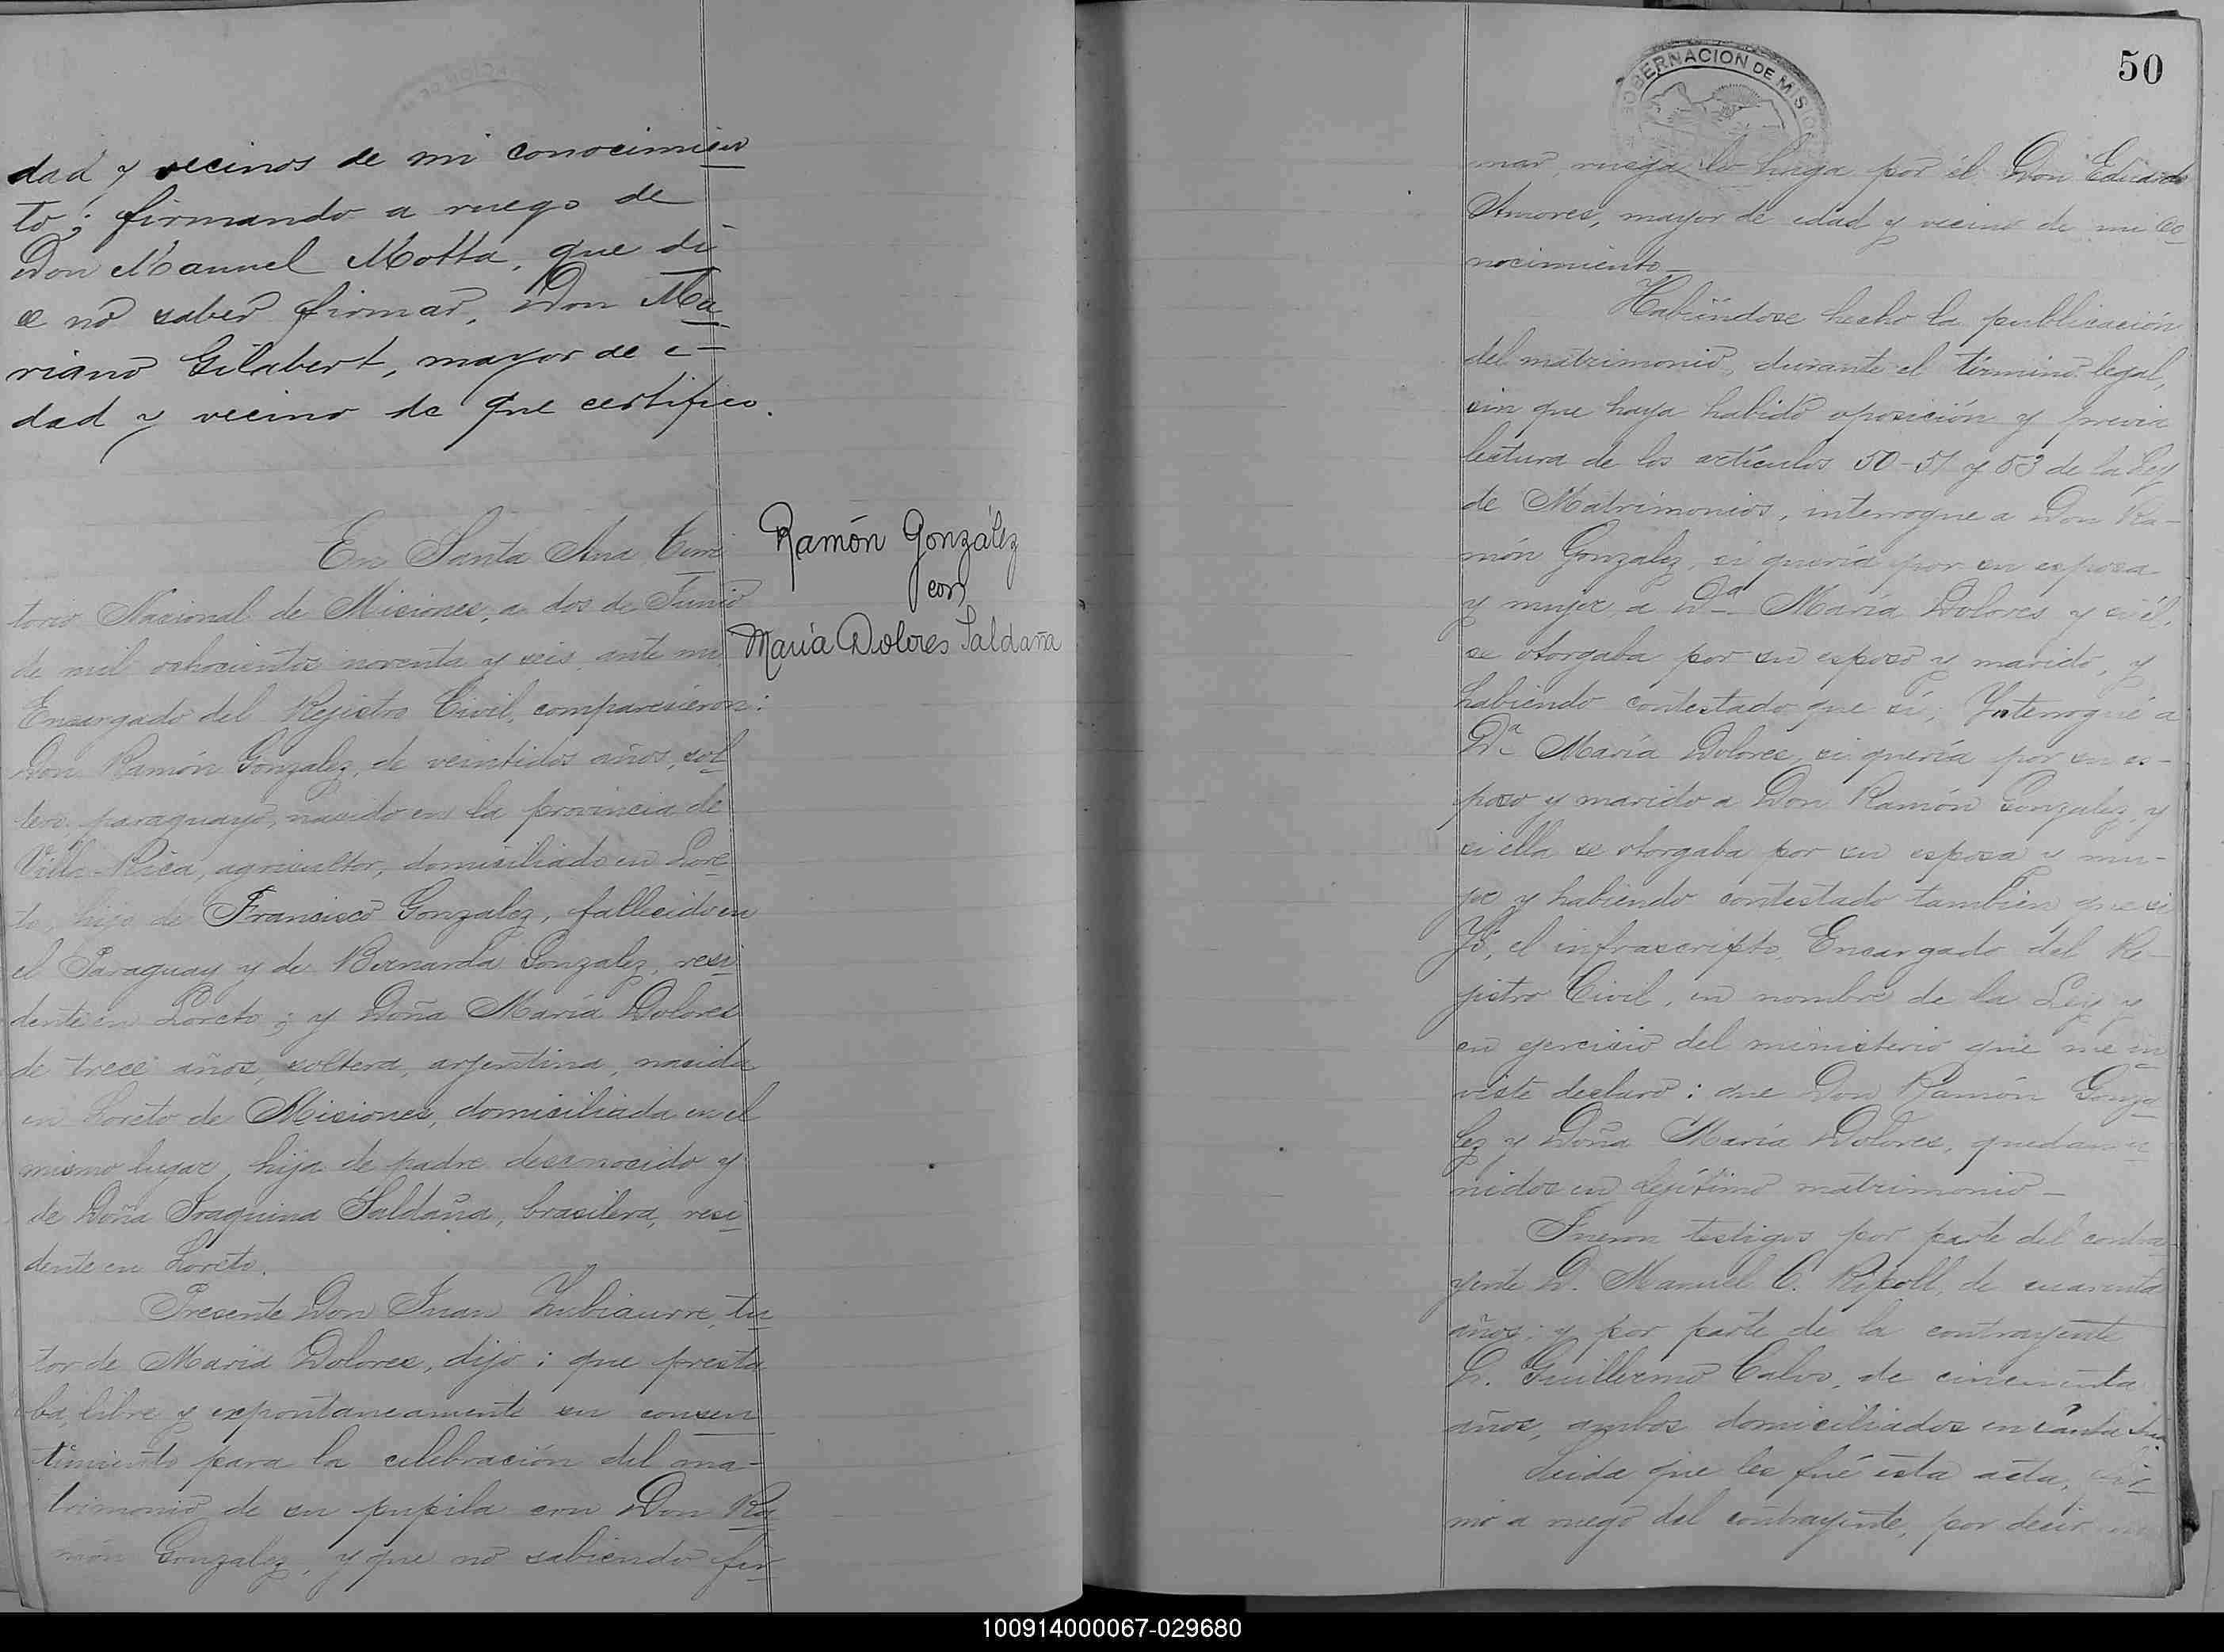 dad y vecinos de mi conocimien
to; firmando a ruego de
Don Manuel Motta, que di
ce no saber firmar, Don Ma
riano Gilabert, mayor de e-
dad y vecino de que certifico.
En Santa Ana Terri
torio Nacional de Misiones, a dos de Junio
de mil ochocientos noventa y seis, ante mi
Encargado del Rejistro Civil, comparecieron:
Don Ramón Gonzalez, de veintidos años, sol
tero, paraguayo, nacido en la provincia de
Villa-Rica, agricultor, domiciliado en Lore
to, hijo de Francisco Gonzalez, fallecido en
el Paraguay y de Bernarda Gonzalez, resi
dente en Loreto; y Doña María Dolores
de trece años, soltera, arjentina, nacida
en Loreto de Misiones, domiciliada en el
mismo lugar, hija de padre desconocido y
de Doña Saldaña, brasilera, resi
dente en Loreto.
Presente Don Juan Zubiaurre, tu
tor de María Dolores, dijo: que presta
ba, libre y expontaneamente su consen
timiento para la celebración del ma-
trimonio de su pupila con Don Ra
món Gonzalez, y que no sabiendo fir
Ramón González
con
María Dolores Saldaña
GOBERNACION DE MISIONES
50
mar, ruega lo haga por él Don Eduardo
Amores, mayor de edad y vecino de mi co
nocimiento-
Habiéndose hecho la publicación
del matrimonio, durante el término legal,
sin que haya habido oposición y previa
lectura de los artículos 50-51 y 53 de la Ley
de Matrimonios, interrogue a Don Ra-
món Gonzalez, si quería por su esposa
y mujer, a Da. María Dolores y si él,
se otorgaba por su esposo y marido, y
habiendo contestado que sí, Ynterrogué a
Da. María Dolores, si quería por su es-
poso y marido a Don Ramón Gonzalez, y
si ella se otorgaba por su esposa y mu-
jer y habiendo contestado tambien que si
Yo, el infrascripto, Encargado del Re-
jistro Civil, en nombre de la Ley y
en ejercicio del ministerio que me in
viste declaro: que Don Ramón Gonza
lez y Doña María Dolores, quedan u
nidos en lejítimo matrimonio-
Fueron testigos por parte del contra
yente D. Manuel C. Ripoll, de cuarenta
años; y por parte de la contrayente
D. Guillermo Calvo, de cincuenta
años, ambos domiciliados en Santa Ana.
Leida que les fué esta acta, fir
mó a ruego del contrayente, por decir
100914000067-029680